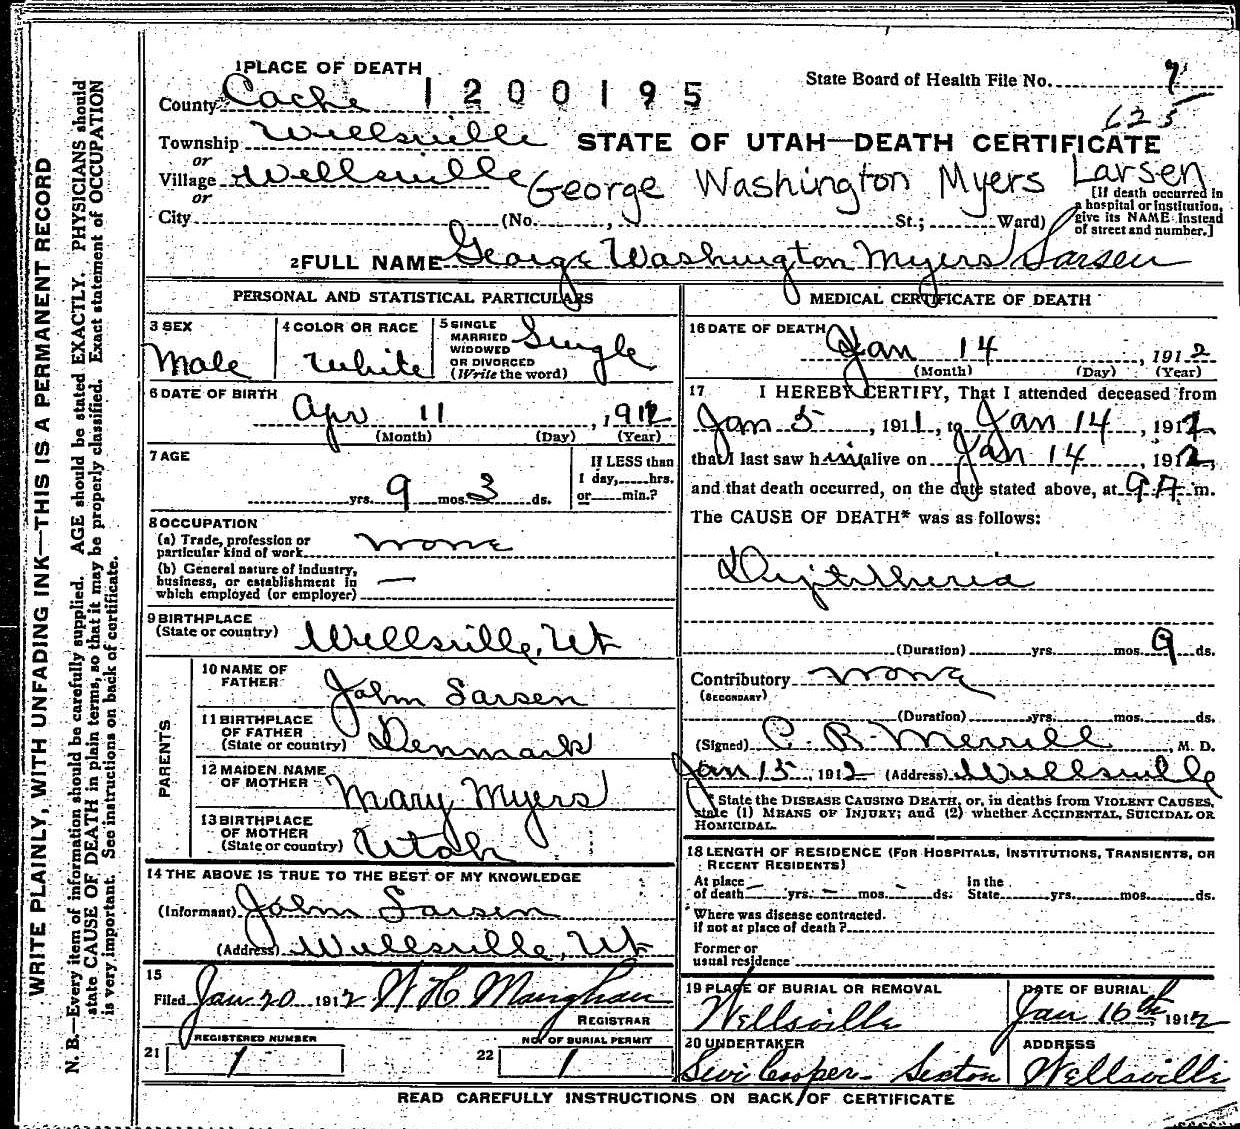 1 PLACE OF DEATH
State Board of Health File No. 9
County Cache 1200195
625
Township Wellsville
STATE OF UTAH—DEATH CERTIFICATE
or
Village Wellsville
George Washington Myers Larsen
or
[If death occurred in a hospital or institution, give its NAME instead of street and number.]
City (No. , St.; Ward)
2 FULL NAME George Washington Myers Larsen
PERSONAL AND STATISTICAL PARTICULARS
3 SEX
Male
4 COLOR OR RACE
White
5 SINGLE MARRIED WIDOWED OR DIVORCED (Write the word)
Single
6 DATE OF BIRTH
Apr 11, 191
(Month) (Day) (Year)
7 AGE
yrs. 9 mos. 3 ds.
If LESS than 1 day, hrs. or min.?
8 OCCUPATION
(a) Trade, profession or particular kind of work None
(b) General nature of industry, business, or establishment in which employed (or employer) —
9 BIRTHPLACE
(State or country) Wellsville, Ut
PARENTS
10 NAME OF FATHER John Larsen
11 BIRTHPLACE OF FATHER (State or country) Denmark
12 MAIDEN NAME OF MOTHER Mary Myers
13 BIRTHPLACE OF MOTHER (State or country) Utah
14 THE ABOVE IS TRUE TO THE BEST OF MY KNOWLEDGE
(Informant) John Larsen
(Address) Wellsville, Ut
15
Filed Jan 20 1912 W H Maughan
REGISTRAR
REGISTERED NUMBER
21 1
NO. OF BURIAL PERMIT
22 1
MEDICAL CERTIFICATE OF DEATH
16 DATE OF DEATH
Jan 14, 1912
(Month) (Day) (Year)
17 I HEREBY CERTIFY, That I attended deceased from
Jan 5, 1911, to Jan 14, 1912
that I last saw him alive on Jan 14, 1912,
and that death occurred, on the date stated above, at 9 A. m.
The CAUSE OF DEATH* was as follows:
Diptheria
(Duration) yrs. mos. 9 ds.
Contributory None
(SECONDARY)
(Duration) yrs. mos. ds.
(Signed) C. R. Merrill, M. D.
Jan 15, 1912 (Address) Wellsville
* State the DISEASE CAUSING DEATH, or, in deaths from VIOLENT CAUSES,
state (1) MEANS OF INJURY; and (2) whether ACCIDENTAL, SUICIDAL OR
HOMICIDAL.
18 LENGTH OF RESIDENCE (FOR HOSPITALS, INSTITUTIONS, TRANSIENTS, OR
RECENT RESIDENTS)
At place of death — yrs. — mos. - ds. In the State yrs. mos. ds.
Where was disease contracted.
if not at place of death?
Former or
usual residence
19 PLACE OF BURIAL OR REMOVAL
Wellsville
DATE OF BURIAL
Jan 16th, 1912
20 UNDERTAKER
Levi Cooper - Sexton
ADDRESS
Wellsville
READ CAREFULLY INSTRUCTIONS ON BACK OF CERTIFICATE
WRITE PLAINLY, WITH UNFADING INK—THIS IS A PERMANENT RECORD
N. B.—Every item of information should be carefully supplied. AGE should be stated EXACTLY. PHYSICIANS should
state CAUSE OF DEATH in plain terms, so that it may be properly classified. Exact statement of OCCUPATION
is very important. See instructions on back of certificate.